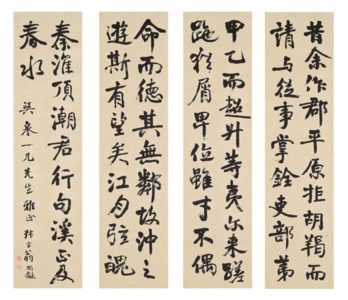 昔余作郡平原拒胡羯而
請与從事掌銓吏部第
甲乙而超升等夷尔来蹭
蹬猶屑卑位雖才不偶
命而德其無鄰故沖之
遊斯有望矣江月弦魄
秦淮頂潮君行句溪正及
春水 泉一兄先生雅正 翁同龢